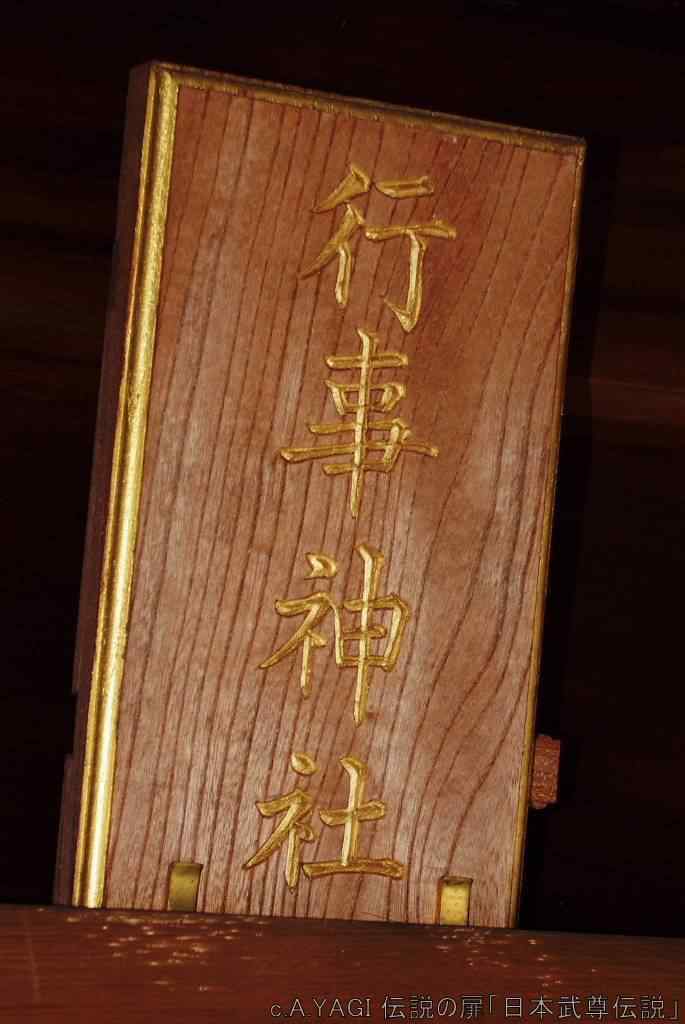 行事神社
c.A.YAGI 伝説の扉「日本武尊伝説」